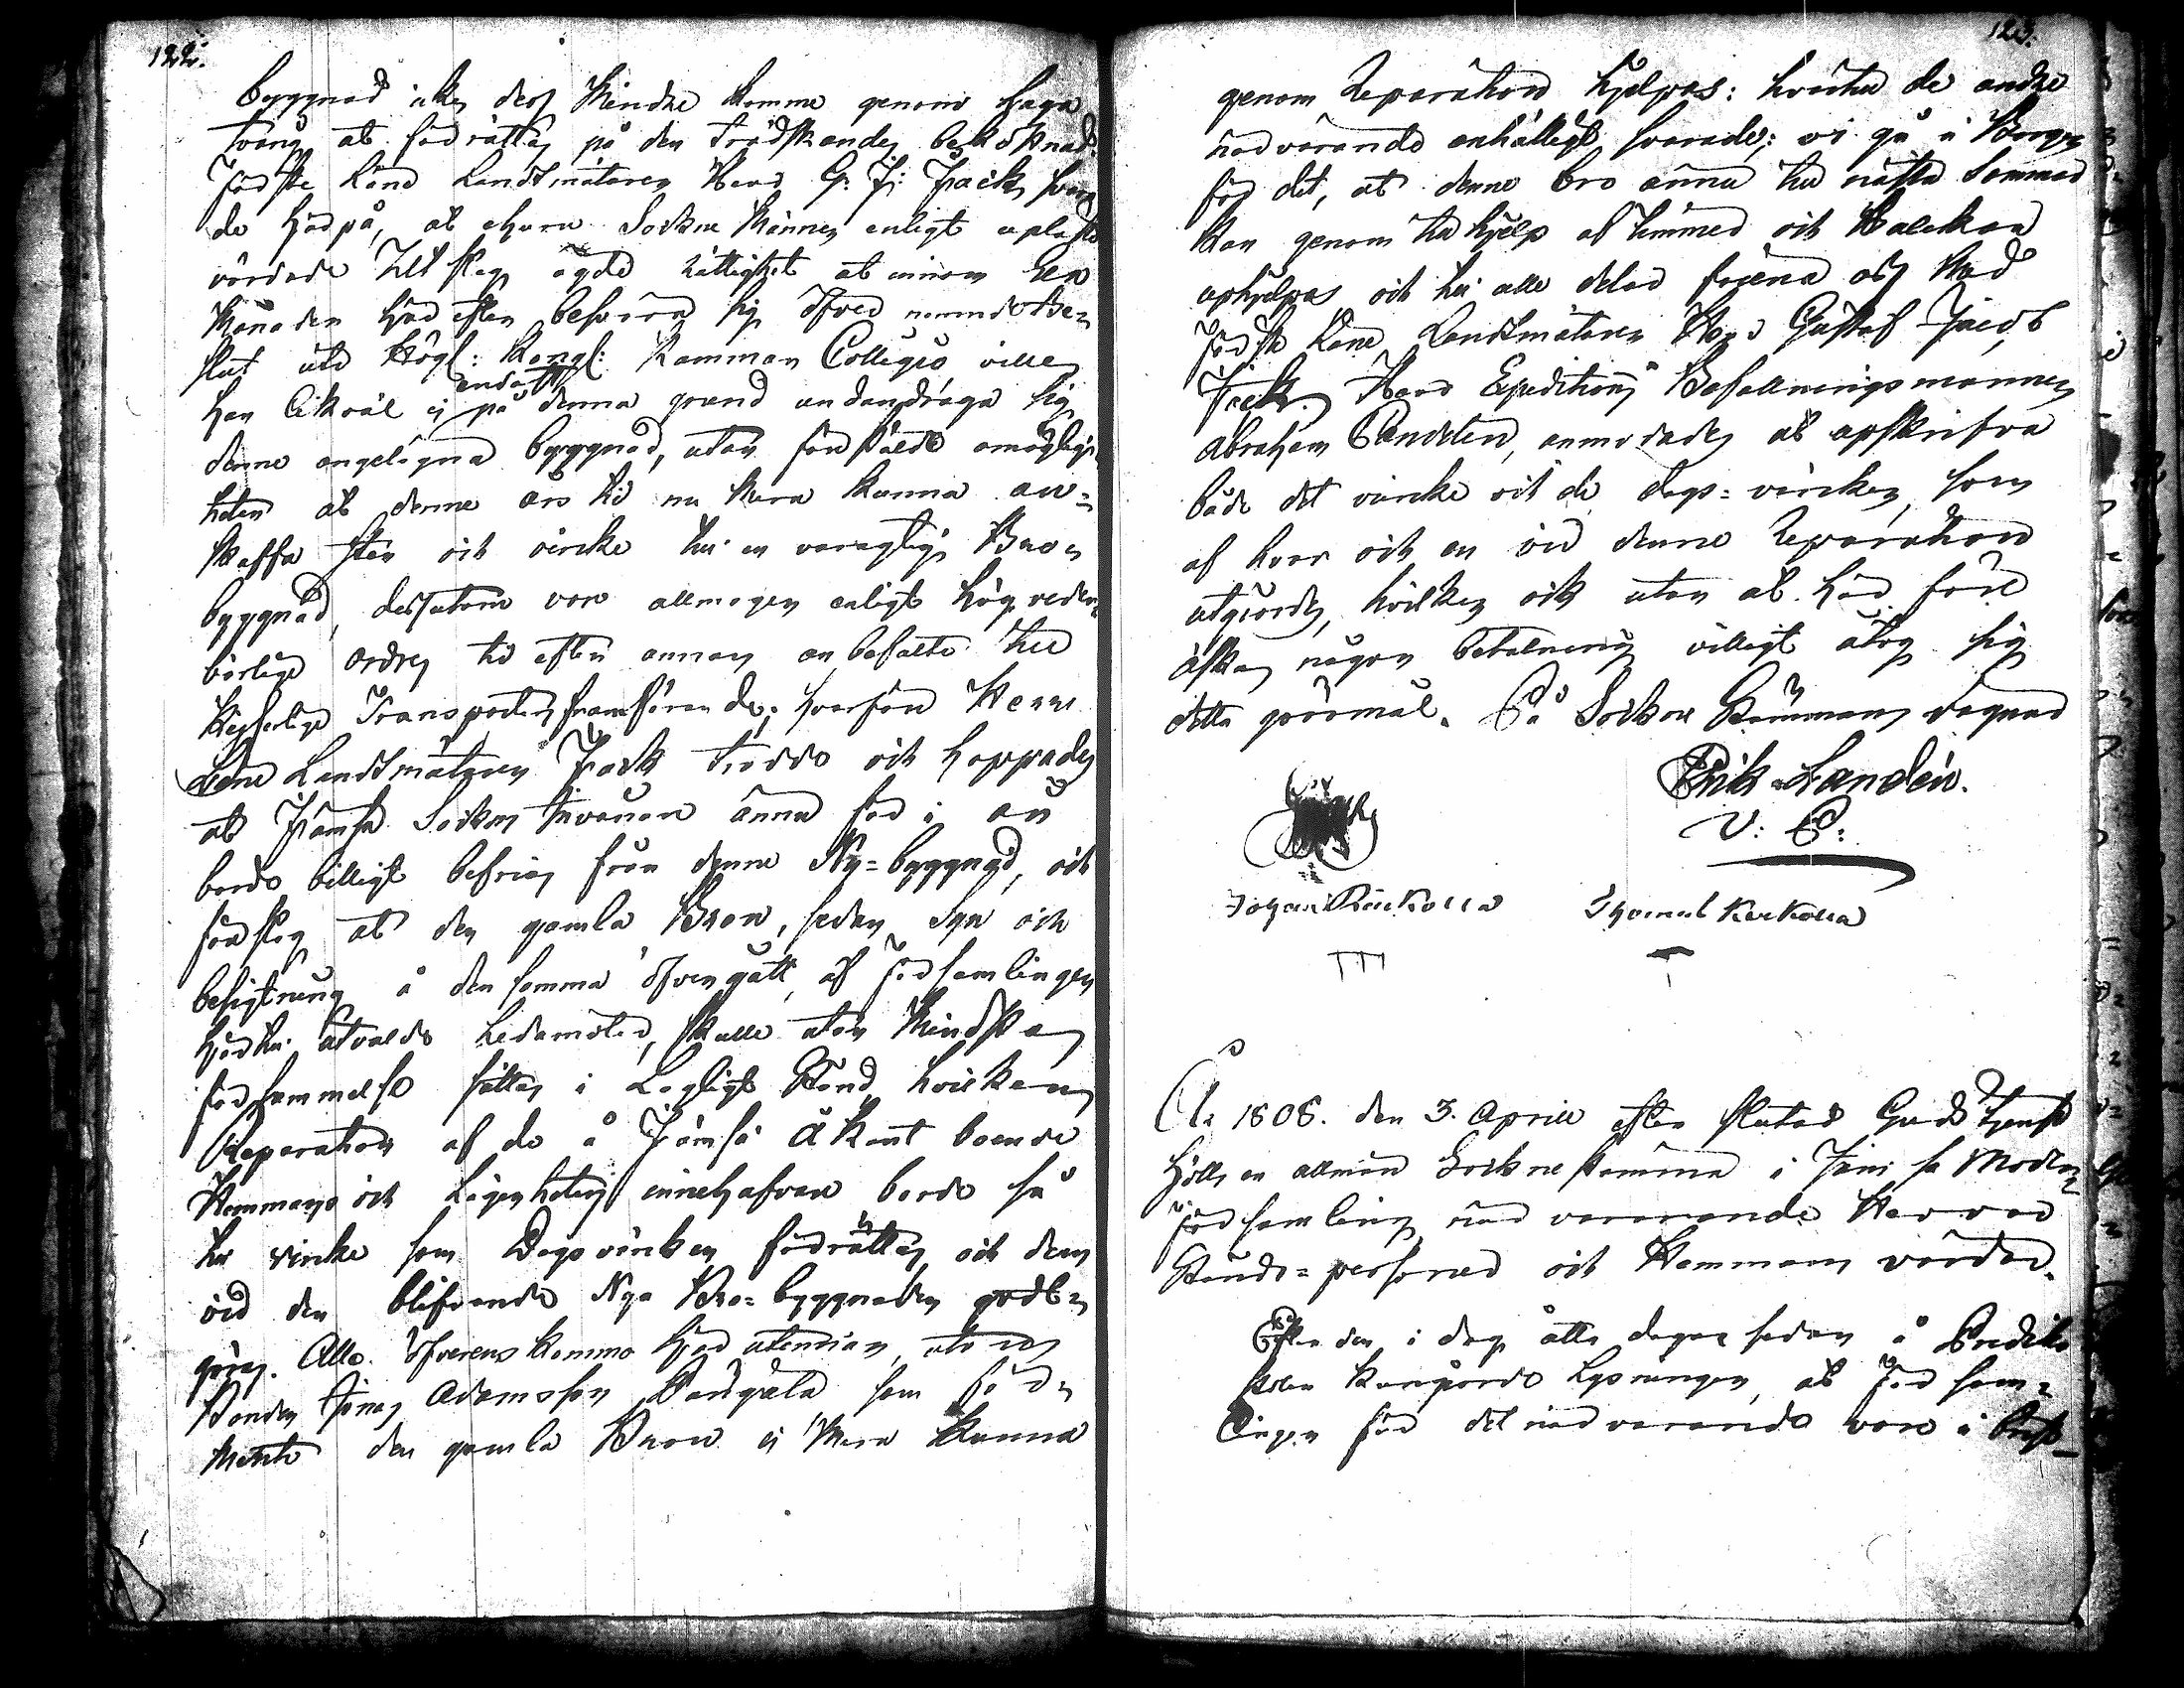 122.
byggnad icke dess Mindre komme genom Laga
tvång at förrättas på den tredskandes bekostnad.
Förste Landtmätaren Herr G. J: Jack svara
de härpå, at ehuru Sockne Männen enligt uplaste
vördade Utslag ägde rättighet at innom En
Månaden här efter besvära sig öfver nemnde Be=
slut uti Högl: Kongl: Kammar Collegio ville
han likväl ej på denna grund undandraga sig
endast
denne angelägna byggnad, utan förestälde omöjlig
heten at denne års tid nu mera kunna an=
skaffa sten och virke till en varaglig Bro=
byggnad, dessutom vore allmogen enligt hög veder=
börlige ordres tid efter annan anbefalte till
Transporters framförande; hvarföre Herr
Landtmätaren Jack trodde och hoppades
at Jämsä Sockne Invånare ännu för i år
borde billigt befrias från denne Ny=byggnad, och
föreslog at den gamla Bron, sedan Syn och
besigtning å den samma öfvergått, af Församlingen
härtil utvalde Ledamöter, skulle utan Mindsta
försummelse sättas i Lagligt Stånd hvilken
Reparation af de å Jämsä Å kant boende
Hemmans och Lägenheters innehafvare borde så
til virke som Dagsverken förrättas och dem
vid den blifvande Nya Bro=byggnaden godt=
göras. Alle öfverenskommo härutinnan, utom
Bonden Jonas Adamsson som för=
mente den gamla Bron ej Mera kunna
123.
genom Reparation hjelpas: hvartil de andre
närvarande enhälligt svarade: vi gå i Borgen
för det, at denne bro ännu till nästa Sommar
kan genom tillhjelp af timmer och
uphjelpas och til alle delar tjena oss Med
Förste Landtmätaren Herr Gustaf Jacob
Jack. Herr Expeditions Befallningsmannen
Abraham anmodades at upskrifva
både det virke och de dags=verken, som
af hvar och en vid denne Reparation
utgiordes, hvilken ock utan at här före
äska någon betalning villigt åtog sig
detta göromål. På Sockne Stämmans vägnar
Erik Landén.
V: P:
Johan Thomas
År 1808. den 3. Aprill efter slutad Gudstjenst
hölts en allmän Sockne stämma i Jämsä Moder=
Församling närvarande Herrar
Stånds=personer och Hemmans värdar.
Efter den i dag åtta dagar sedan å Predik
stolen kungjorde Lysningen, at Församl=
lingen för det närvarande vore i brist